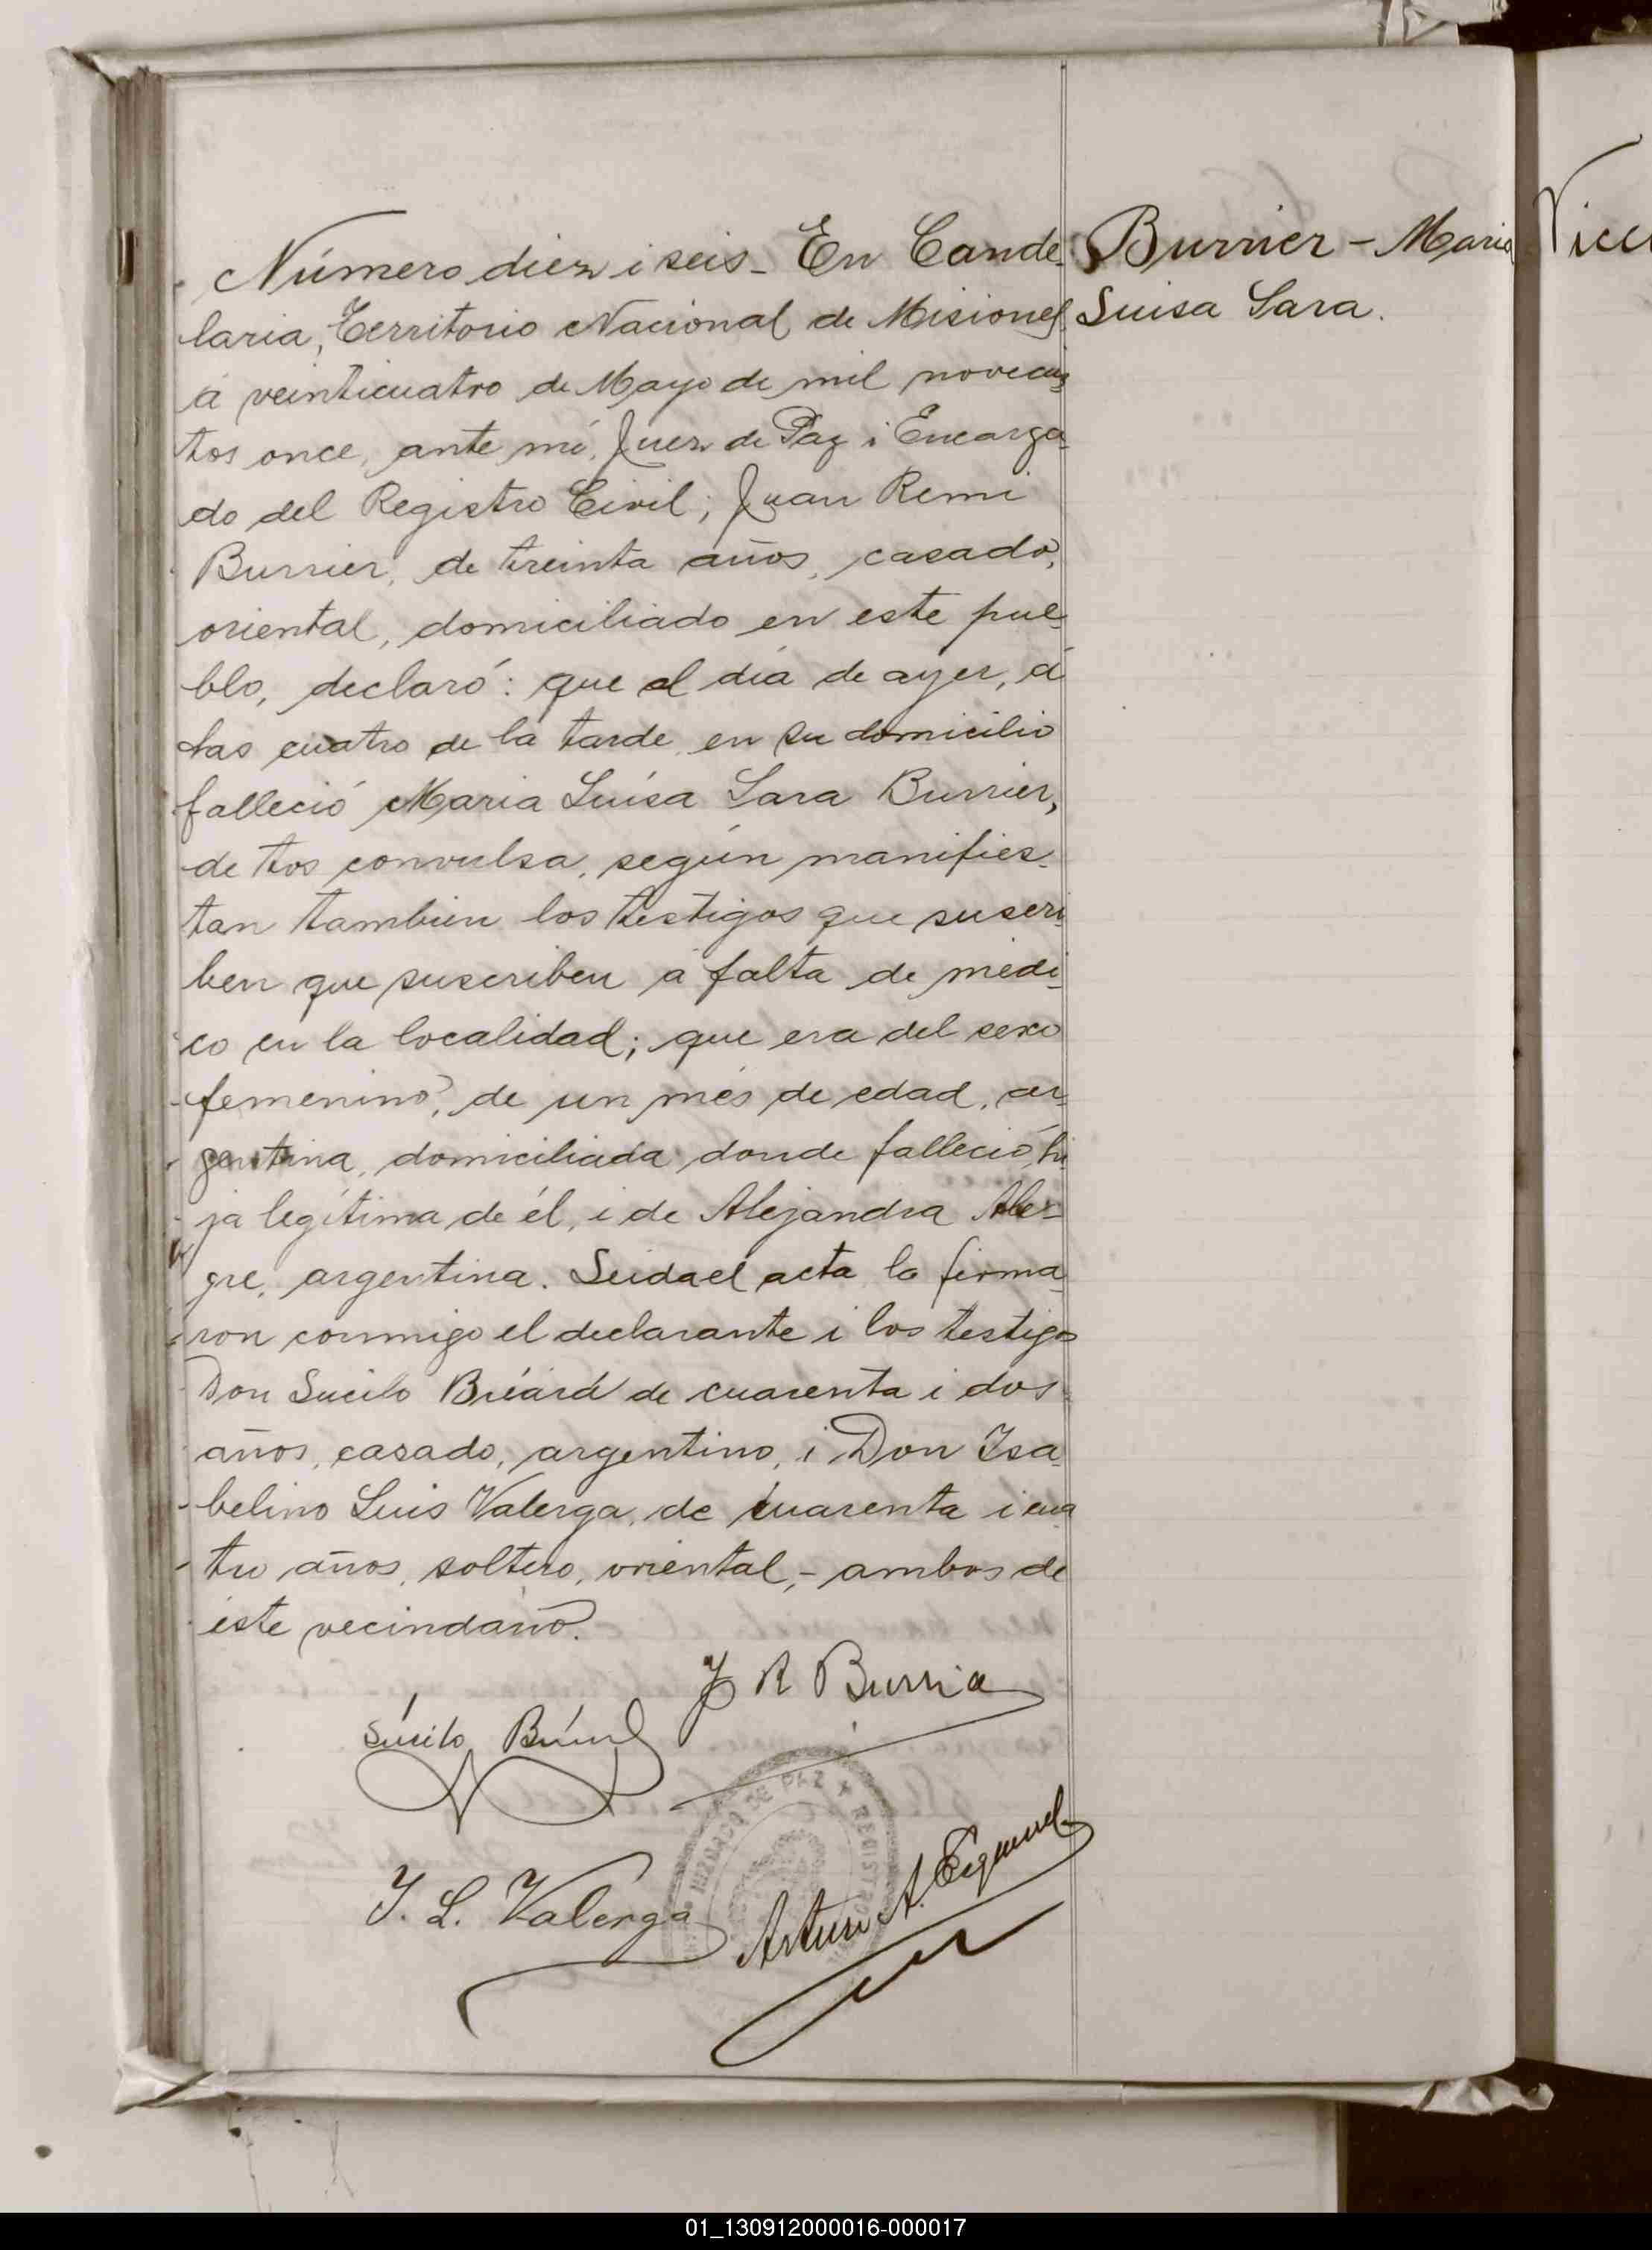 Número diez i seis - En Cande-
laria, Territorio Nacional de Misiones
á veinticuatro de Mayo de mil novecien-
tos once, ante mí, Juez de Paz i Encarga-
do del Registro Civil; Juan Remi
Burrier, de treinta años, casado,
oriental, domiciliado en este pue-
blo, declaró: que el día de ayer, á
las cuatro de la tarde, en su domicilio
falleció Maria Luísa Sara Burrier,
de tos convulsa, según manifies-
tan tambien los testigos que suscri-
ben que suscriben á falta de médi-
co en la localidad; que era del sexo
femenino, de un més de edad, ar-
gentina, domiciliada donde falleció, hi-
ja legítima de él, i de Alejandra Ale-
gre, argentina. Leida el acta, la firma-
ron conmigo el declarante i los testigos
Don Lucilo Bréard de cuarenta i dos
años, casado, argentino, i Don Isa-
belino Luis Valerga, de cuarenta i cua
tro años, soltero, oriental, - ambos de
éste vecindario.
Burrier - Maria
Luisa Sara.
J R Burrier
Lucilo
I. L. Valerga
JUZGADO DE PAZ Y REGISTRO
Arturo A.
01_130912000016-000017